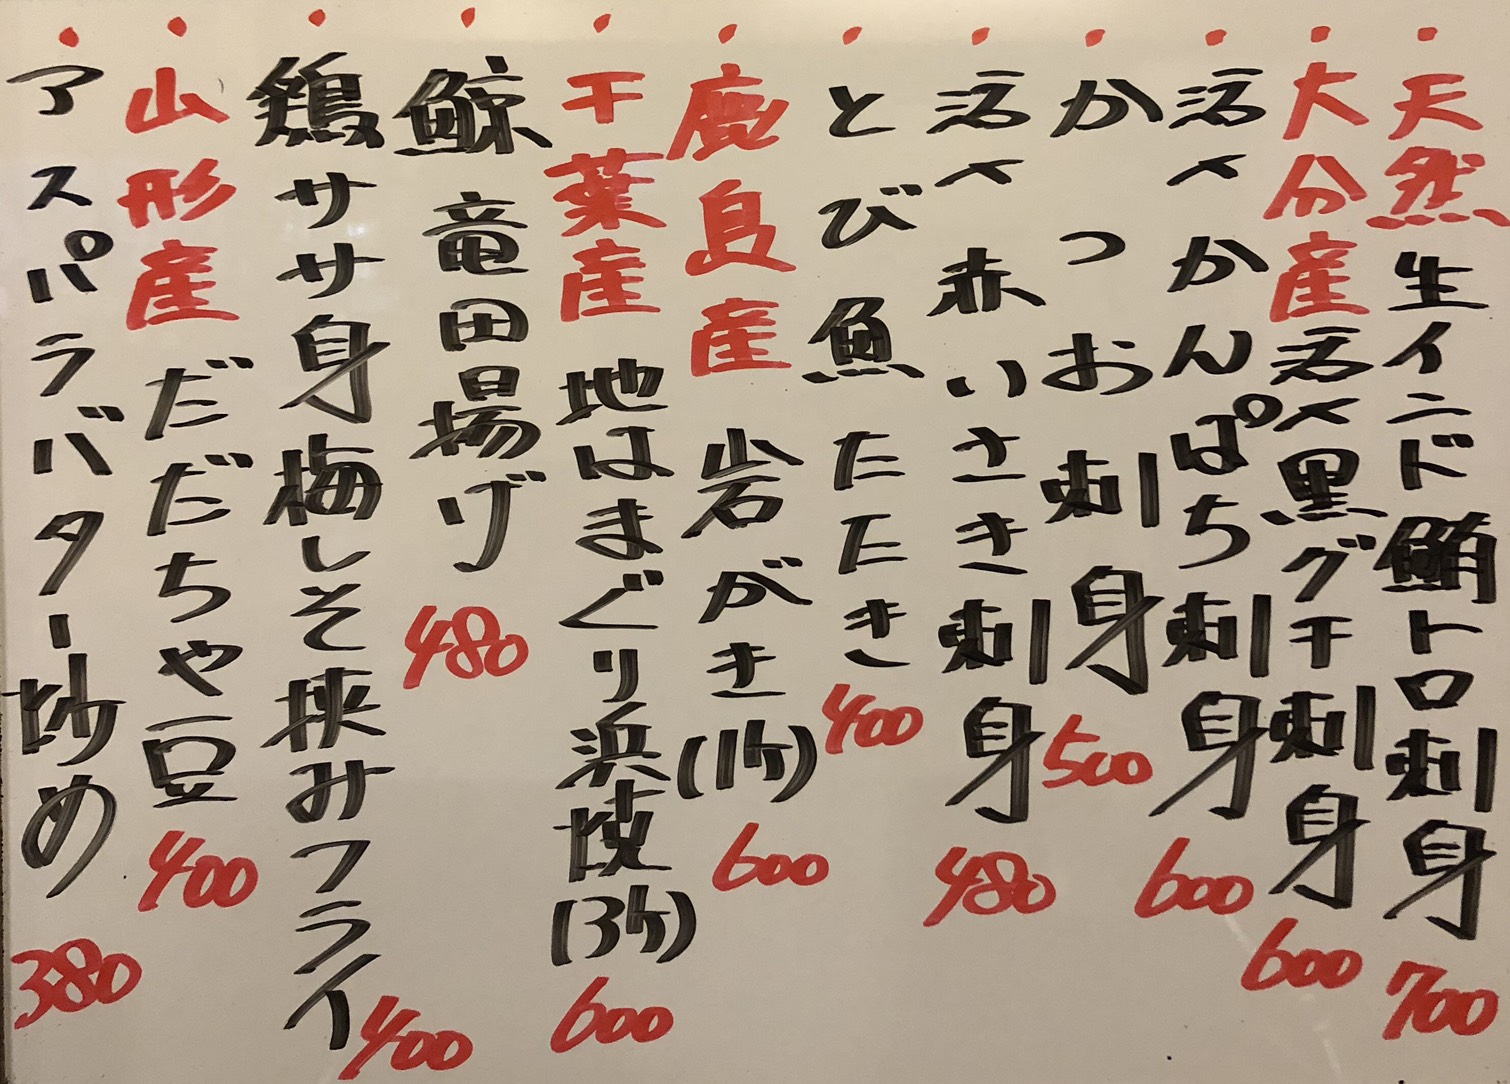 天然生インド鮪トロ刺身 700
大分産活〆黒グチ刺身 600
活〆かんぱち刺身 600
かつお刺身 500
活〆赤いさき刺身 480
とび魚たたき 400
鹿島産岩がき(1ヶ) 600
千葉産地はまぐり浜焼(3ヶ) 600
鯨竜田揚げ 480
鶏ササ身梅しそ挟みフライ 400
山形産だだちゃ豆 400
アスパラバター炒め 380